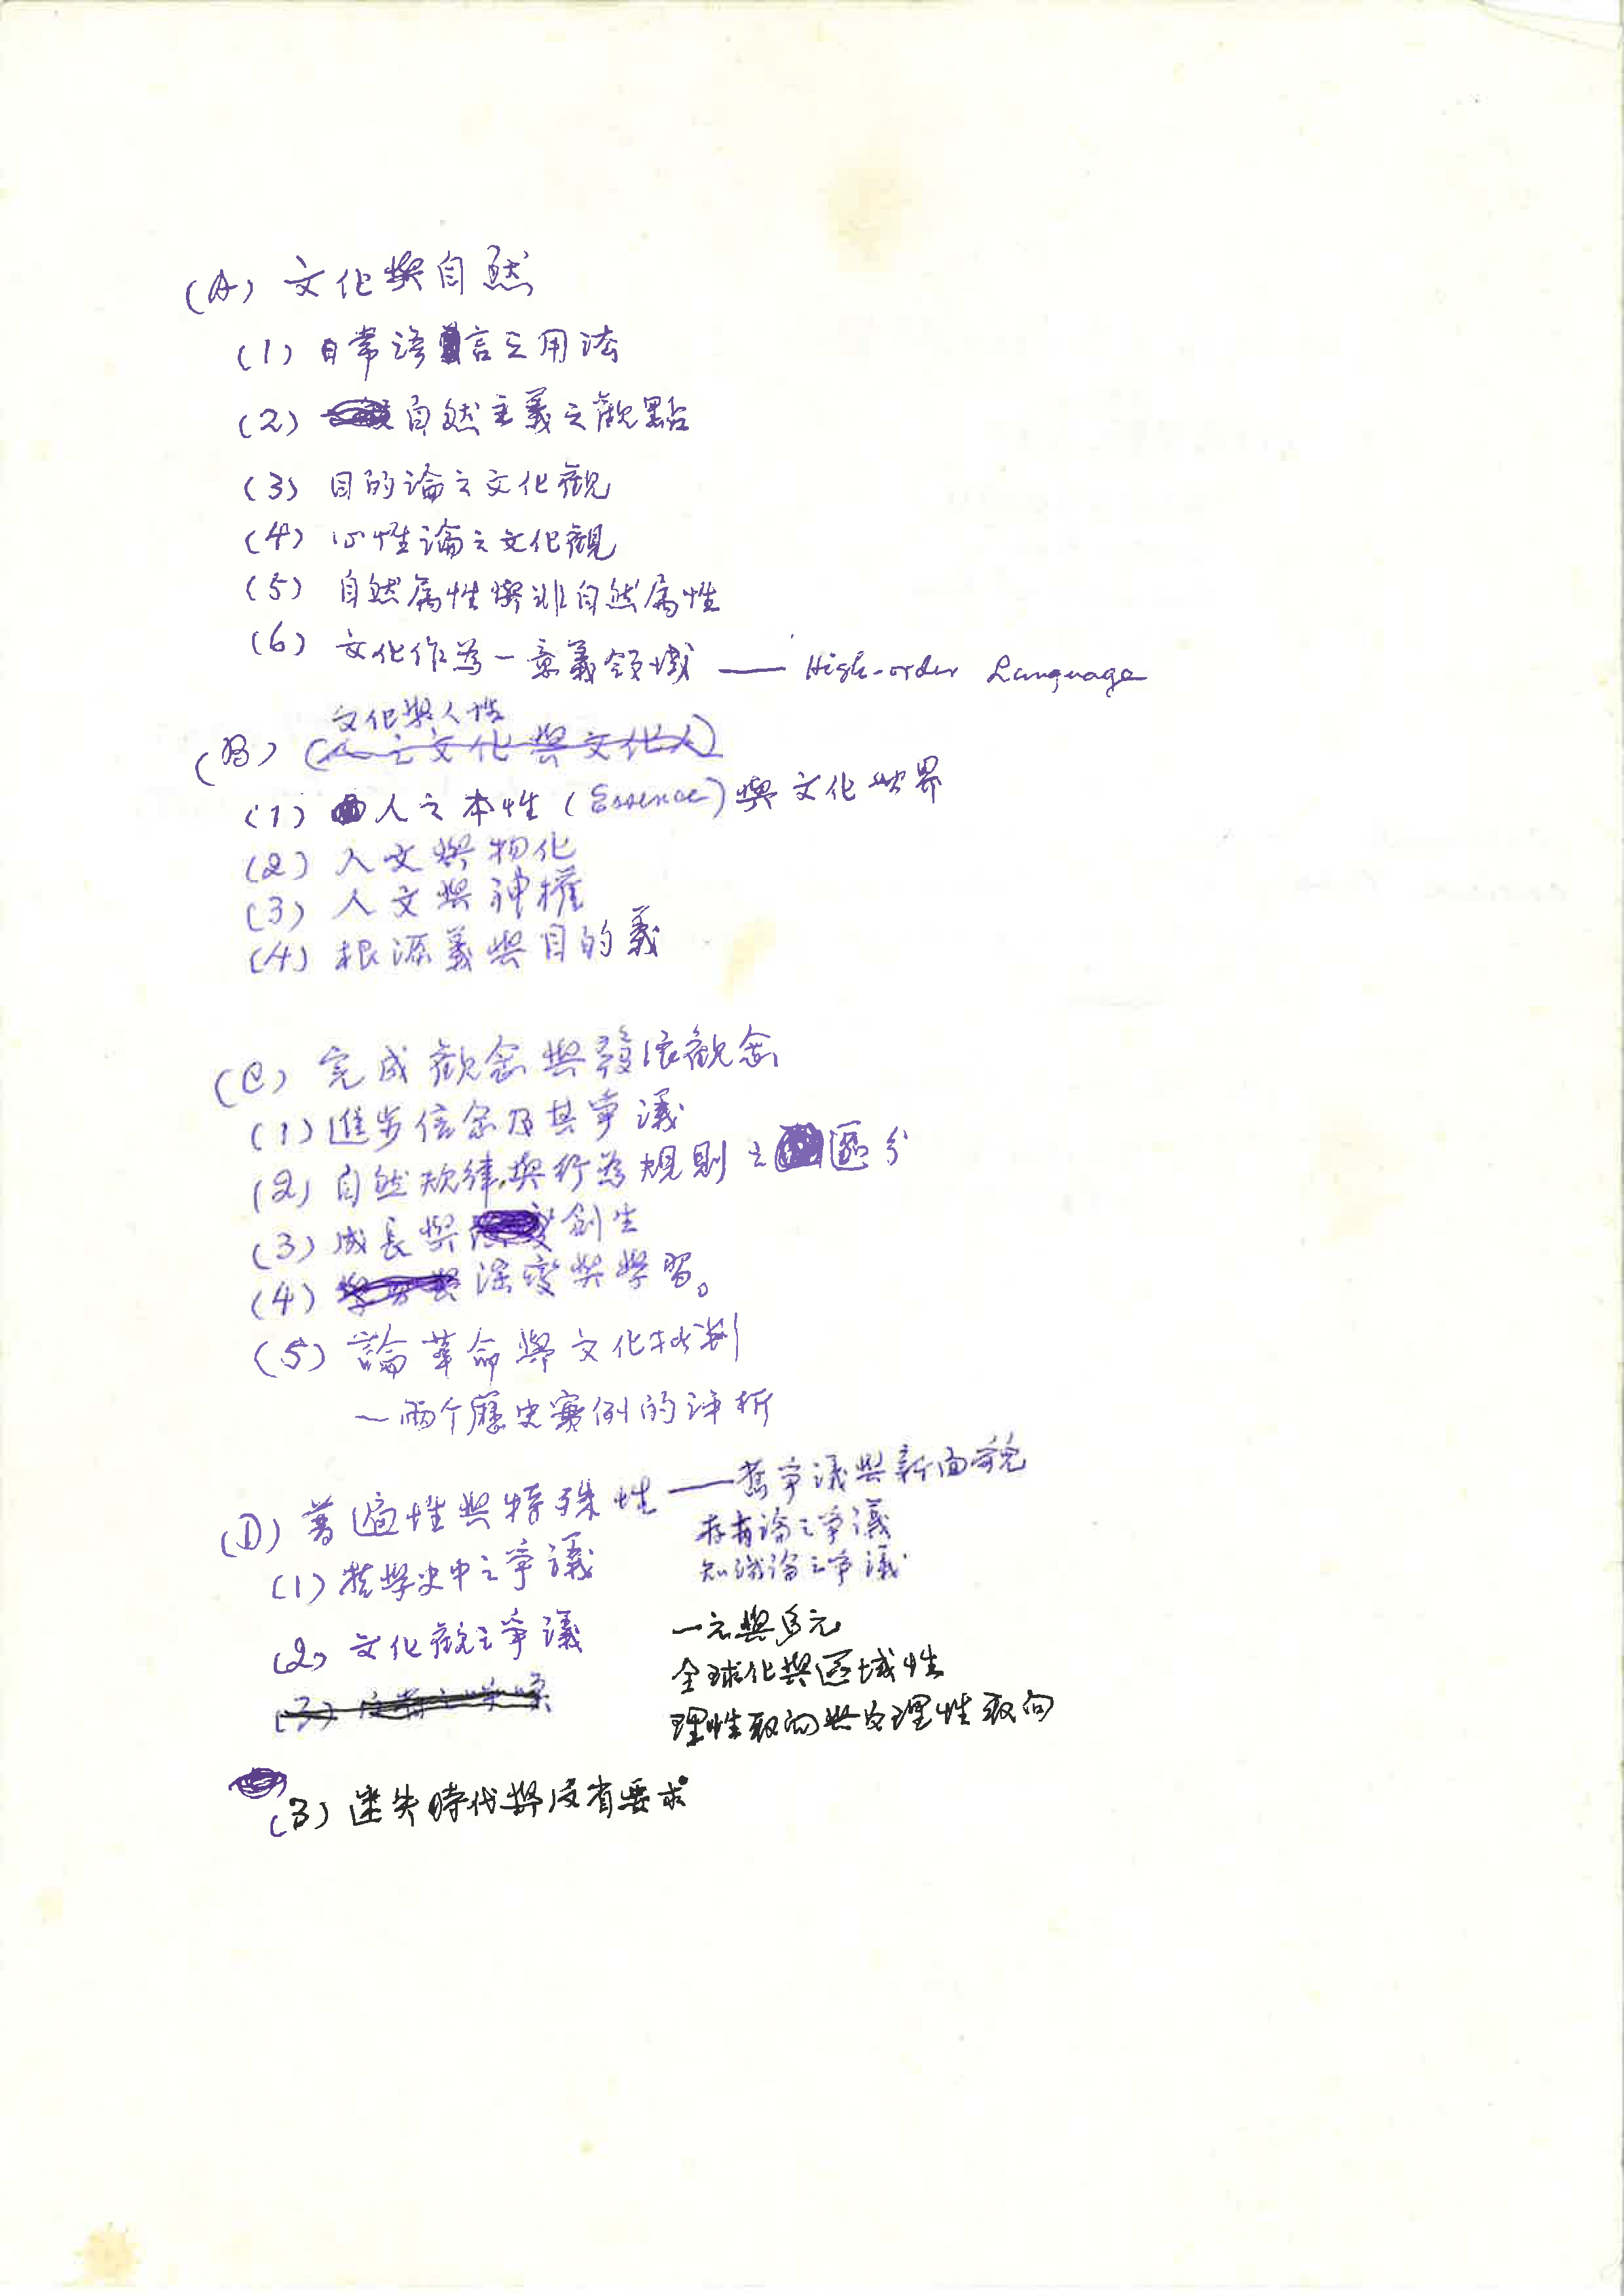 (A) 文化與自然
(1) 日常語言之用法
(2) 自然主義之觀點
(3) 目的論之文化觀
(4) 心性論之文化觀
(5) 自然属性與非自然属性
(6) 文化作為一意義領域 —— High-order Language
文化與人性
(B) (人之文化與文化人)
(1) 人之本性 (Essence) 與文化世界
(2) 人文與物化
(3) 人文與神權
(4) 根源義與目的義
(C) 完成觀念與發展觀念
(1) 進步信念及其爭議
(2) 自然規律與行為規則之區分
(3) 成長與創生
(4) 深變與學習。
(5) 論革命與文化批判
—兩个歷史實例的評析
(D) 普遍性與特殊性 —— 舊爭議與新面貌
存有論之爭議
(1) 哲學史中之爭議
知識論之爭議
(2) 文化觀之爭議
一元與多元
全球化與區域性
(3)
理性取向與反理性取向
(3) 迷失時代與反省要求